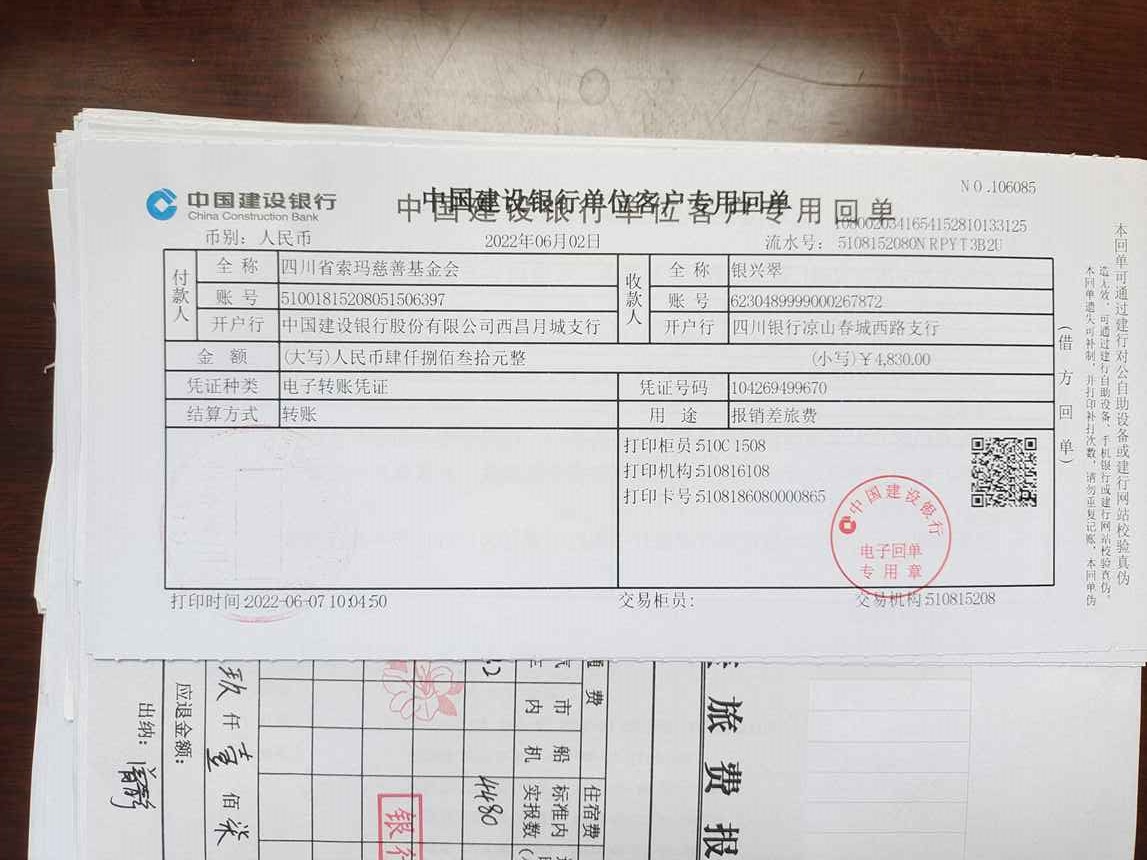 中国建设银行
China Construction Bank
中国建设银行单位客户专用回单
中国建设银行单位客户专用回单
NO.106085
币别：人民币
2022年06月02日
1080020341654152810133125
流水号： 5108152080NRPYT3B2U
付款人
全 称 四川省索玛慈善基金会
账 号 51001815208051506397
开户行 中国建设银行股份有限公司西昌月城支行
收款人
全 称 银兴翠
账 号 6230489999000267872
开户行 四川银行凉山春城西路支行
金 额 (大写)人民币肆仟捌佰叁拾元整 (小写)￥4,830.00
凭证种类 电子转账凭证 凭证号码 104269499670
结算方式 转账 用 途 报销差旅费
打印柜员:510C1508
打印机构:510816108
打印卡号:5108186080000865
中国建设银行
电子回单
专用章
打印时间:2022-06-07 10:04:50 交易柜员： 交易机构:510815208
(借方回单)
本回单可通过建行对公自助设备或建行网站校验真伪
造无效，可通过建行自助设备、手机银行或建行网站校验真伪。
本回单遗失可补制，并打印补打次数，请勿重复记账，本回单伪
旅费报
费
市内
船
机
住宿费
标准内
实报数
4480
银行
玖仟壹佰柒
应退金额：
出纳：